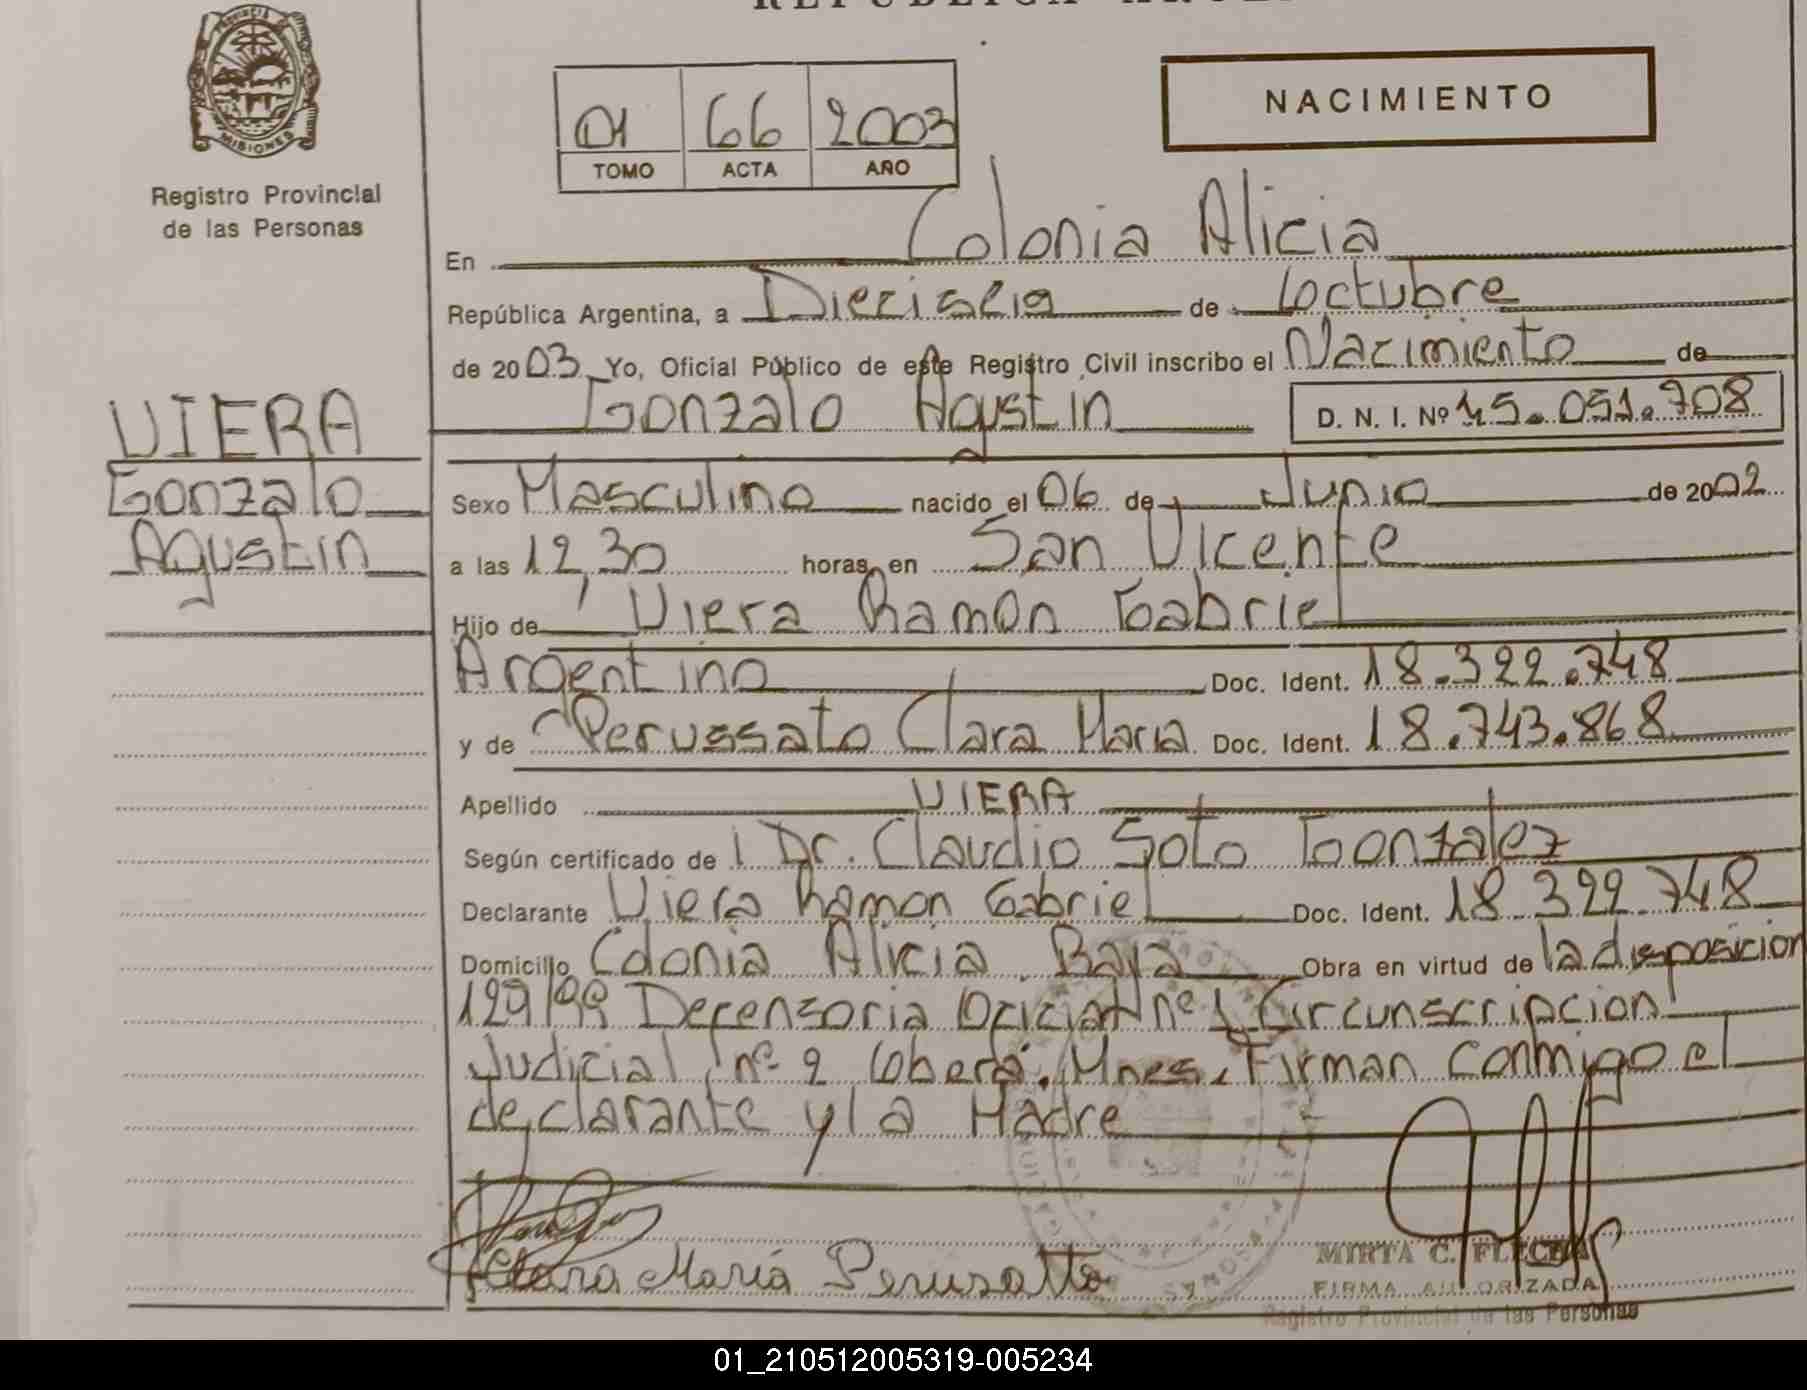 REPUBLICA ARGE
PROVINCIA DE
MISIONES
Registro Provincial
de las Personas
01 66 2003
TOMO ACTA AÑO
NACIMIENTO
En Colonia Alicia
República Argentina, a Dieciseis de Octubre
de 2003 Yo, Oficial Público de este Registro Civil inscribo el Nacimiento de
Gonzalo Agustin D. N. I. Nº 45.051.708
VIERA
Gonzalo
Agustin
Sexo Masculino nacido el 06 de Junio de 2002
a las 12,30 horas en San Vicente
Hijo de Viera Ramon Gabriel
Argentino Doc. Ident. 18.322.748
y de Perussato Clara Maria Doc. Ident. 18.743.868
Apellido VIERA
Según certificado de Dr. Claudio Soto Gonzalez
Declarante Viera Ramon Gabriel Doc. Ident. 18.322.748
Domicilio Colonia Alicia Baja Obra en virtud de la disposicion
129/99 Defensoria Oficial nº 1 Circunscripcion
Judicial nº 2 Obera. Mnes. Firman conmigo el
declarante y la Madre
Clara María Perusatto
MIRTA C. FLECHA
FIRMA AUTORIZADA
Registro Provincial de las Personas
01_210512005319-005234